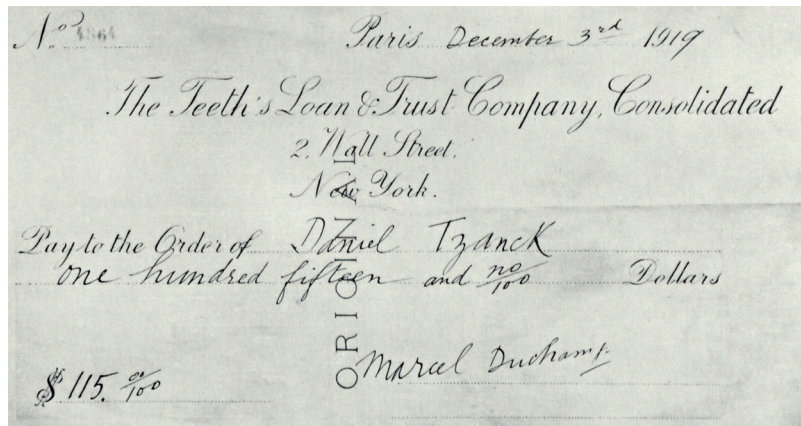 No 4864 Paris December 3rd 1919
The Teeth's Loan & Trust Company, Consolidated
2. Wall Street.
New York.
Pay to the Order of Daniel Tzanck
one hundred fifteen and no/100 Dollars
$ 115. oo/100
Marcel Duchamp.
ORIGINAL